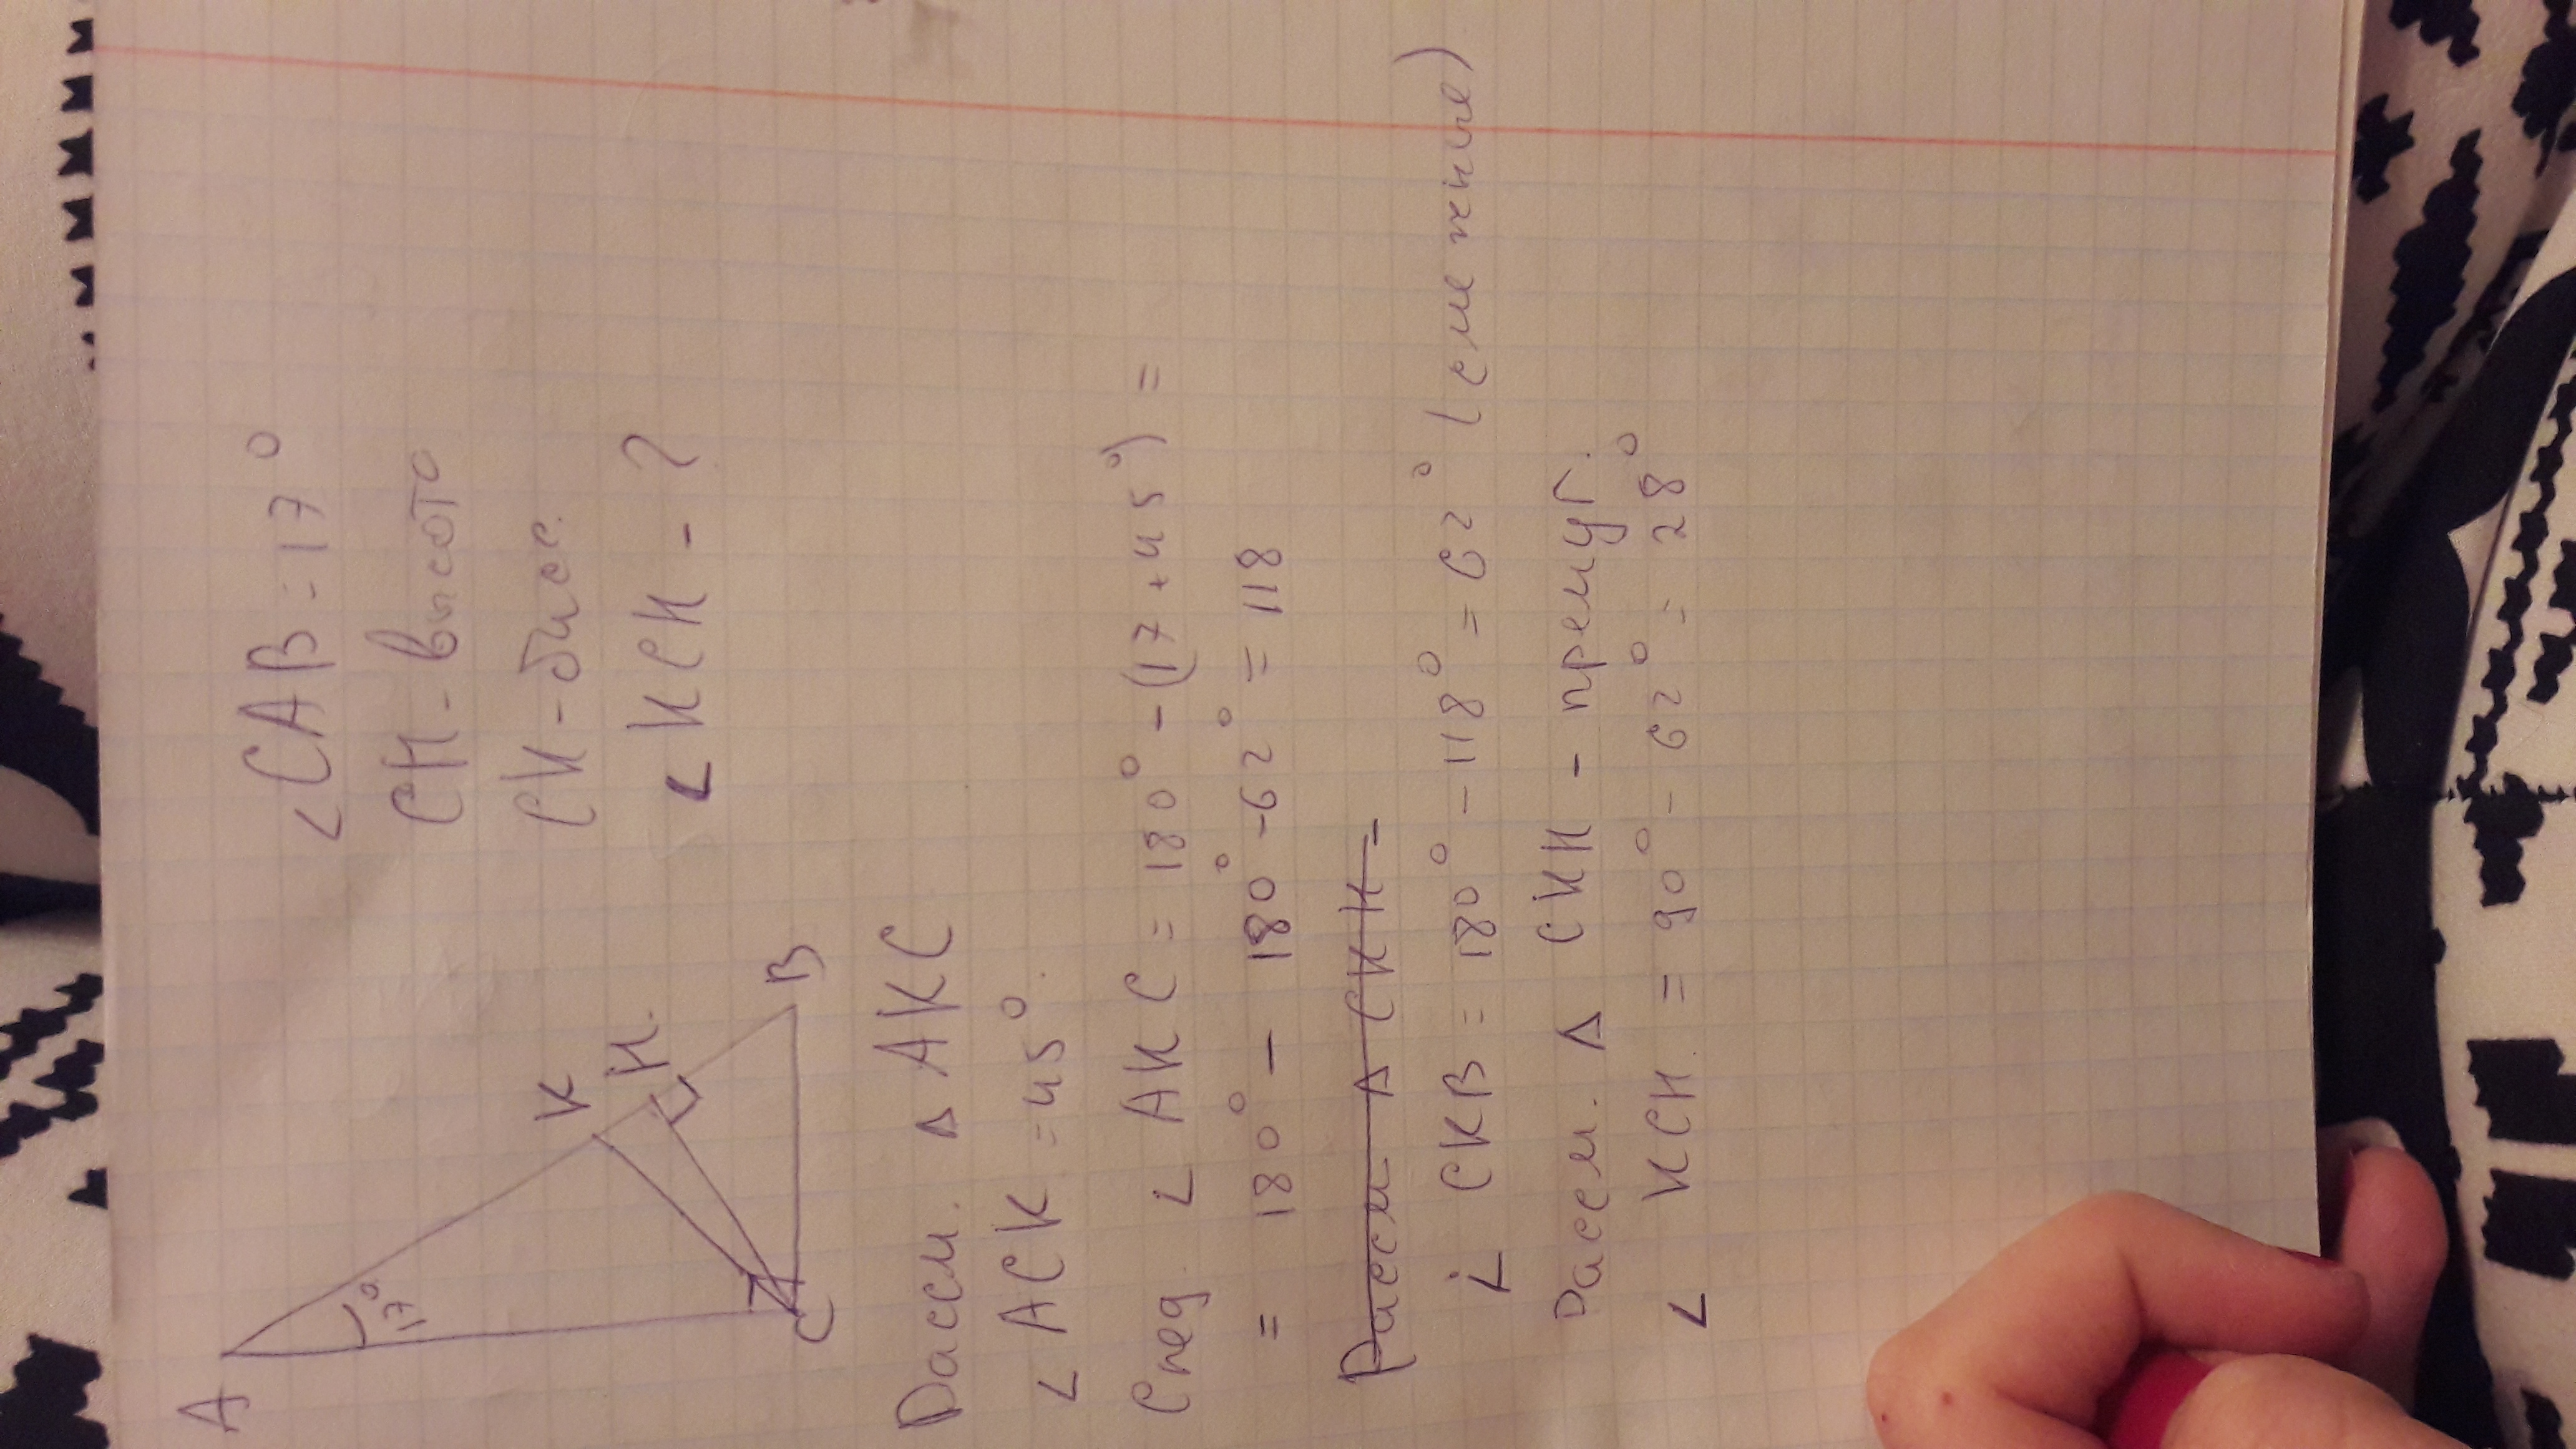 A
17°
K
H.
C
B
∠CAB = 17°
CH - высота
CK - бисс.
∠ KCH - ?
Рассм. Δ AKC
∠ ACK = 45°.
След ∠ AKC = 180° - (17 + 45°) =
= 180° - 180° - 62° = 118
Рассм Δ CKH -
∠ CKB = 180° - 118° = 62° (смежные)
Рассм. Δ CKH - прямуг.
∠ KCH = 90° - 62° = 28°